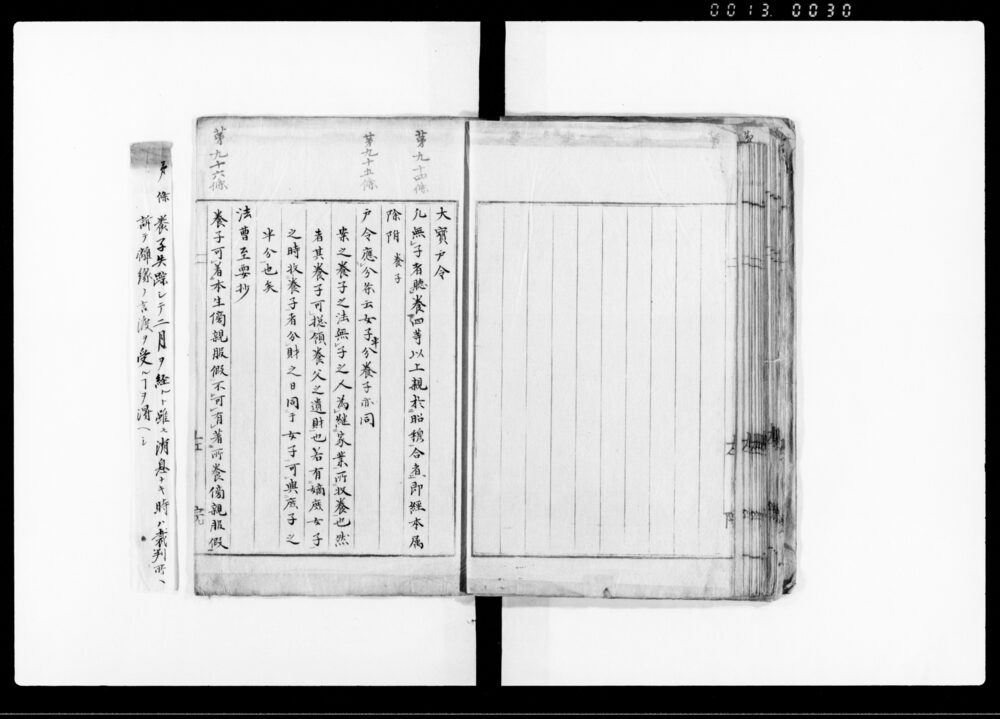 0013. 0030
第九十四條
第九十五條
第九十六條
大寶戸令
凡無子者聴養四等以上親於昭穆合者即經本属
除附 養子
戸令應分条云女子半分養子亦同
案之養子之法無子之人為継家業所収養也然
者其養子可惣領養父之遺財也若有嫡庶女子
之時収養子者分財之日同于女子可與庶子之
半分也矣
法曹至要抄
養子可着本生傍親服假不可有著所養傍親服假
左
院
條 養子失踪シテ二月ヲ経ルト雖モ消息ナキ時ハ裁判所ヘ
訴テ離縁ノ言渡ヲ受ルヿヲ得ヘシ